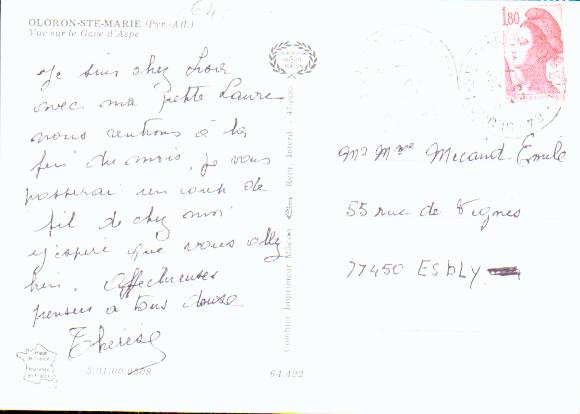 64
OLORON-STE-MARIE (Pyr.-Atl.)
Vue sur le Gave d'Aspe
Je suis chez
avec ma petite Laure
nous rentrons à la
fin du mois, je vous
passerai un coup de
fil de chez moi
j'espère que vous allez
bien. Affectueuses
pensées a tous
Thérèse
3.01.00.0808
64.422
Combier Imprimeur Mâcon Repr. Interd.
1,80
Mr Mme Micaud Emile
55 rue de Vignes
77450 ESBLY